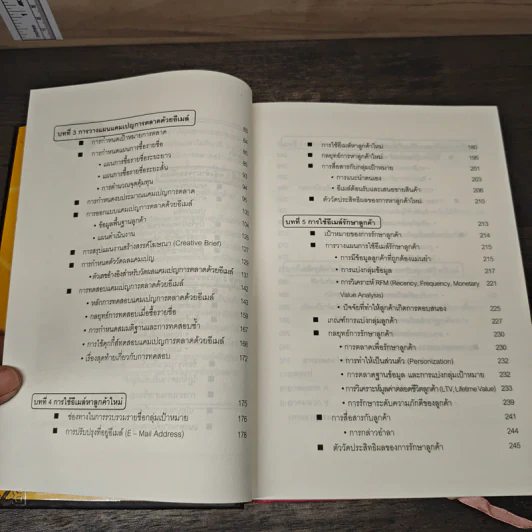 บทที่ 3 การวางแผนแคมเปญการตลาดด้วยอีเมล์
■ การกำหนดเป้าหมายการตลาด
■ การกำหนดแผนการซื้อรายชื่อ
• แผนการซื้อรายชื่อระยะยาว
• แผนการซื้อรายชื่อระยะสั้น
• การคำนวณจุดคุ้มทุน
■ การกำหนดงบประมาณแคมเปญการตลาด
■ การออกแบบแคมเปญการตลาดด้วยอีเมล์
• ข้อมูลพื้นฐานลูกค้า
• แผนดำเนินงาน
■ การสรุปแผนงานสร้างสรรค์โฆษณา (Creative Brief) 121
■ การกำหนดตัววัดผลแคมเปญ 127
• ตัวเลขอ้างอิงสำหรับวัดผลแคมเปญการตลาดด้วยอีเมล์ 131
■ การทดสอบแคมเปญการตลาดด้วยอีเมล์ 137
• หลักการทดสอบแคมเปญการตลาดด้วยอีเมล์ 143
• กลยุทธ์การทดสอบเมื่อซื้อรายชื่อ 158
• การกำหนดสมมติฐานและการทดสอบซ้ำ 163
• การใช้คุกกี้ทดสอบแคมเปญการตลาดด้วยอีเมล์ 166
• เรื่องสุดท้ายเกี่ยวกับการทดสอบ 172
บทที่ 4 การใช้อีเมล์หาลูกค้าใหม่ 175
■ ช่องทางในการรวบรวมรายชื่อกลุ่มเป้าหมาย 176
■ การปรับปรุงที่อยู่อีเมล์ (E – Mail Address) 178
■ การใช้อีเมล์หาลูกค้าใหม่ 180
■ กลยุทธ์การหาลูกค้าใหม่ 198
■ การสื่อสารกับกลุ่มเป้าหมาย 201
• การแนะนำตนเอง 203
• อีเมล์ต้อนรับและเสนอขายสินค้า 206
■ ตัววัดประสิทธิผลของการหาลูกค้าใหม่ 210
บทที่ 5 การใช้อีเมล์รักษาลูกค้า 213
■ เป้าหมายของการรักษาลูกค้า 214
■ การวางแผนการใช้อีเมล์รักษาลูกค้า 215
• การมีข้อมูลลูกค้าที่ถูกต้องแม่นยำ 215
• การแบ่งกลุ่มข้อมูล 217
• การวิเคราะห์ RFM (Recency, Frequency, Monetary 221
Value Analysis)
• ปัจจัยที่ทำให้ลูกค้าเกิดการตอบสนอง 225
■ เกณฑ์การแบ่งกลุ่มลูกค้า 227
■ กลยุทธ์การรักษาลูกค้า 230
• การตลาดเพื่อรักษาลูกค้า 230
• การทำให้เป็นส่วนตัว (Personization) 232
• การตลาดฐานข้อมูล และการแบ่งกลุ่มเป้าหมาย 232
• การวิเคราะห์มูลค่าตลอดชีวิตลูกค้า (LTV, Lifetime Value) 233
• การรักษาระดับความภักดีของลูกค้า 239
■ การสื่อสารกับลูกค้า 241
• การกล่าวอำลา 244
■ ตัววัดประสิทธิผลของการรักษาลูกค้า 245